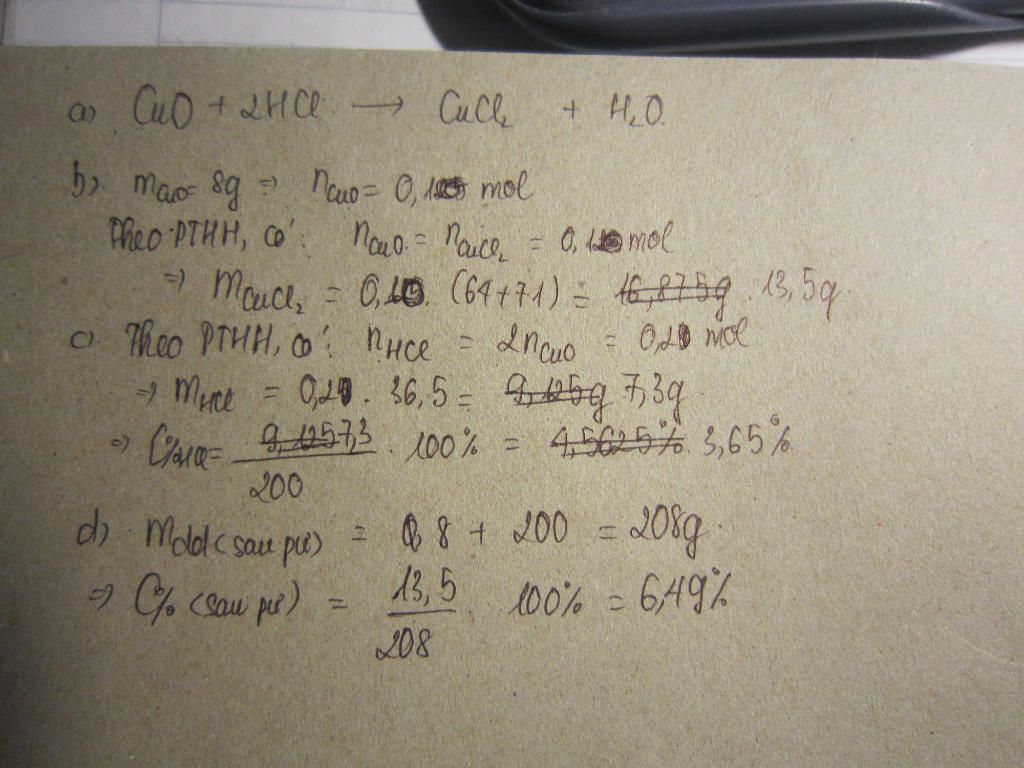 a) CuO + 2HCl → CuCl₂ + H₂O
b) mCuO = 8g => nCuO = 0,1 mol
Theo PTHH, có: nCuO = nCuCl₂ = 0,1 mol
=> mCuCl₂ = 0,1 . (64+71) = 16,875g 13,5g
c) Theo PTHH, có: nHCl = 2nCuO = 0,2 mol
=> mHCl = 0,2 . 36,5 = 9,125g 7,3g
=> C%HCl = 9,125 7,3 / 200 . 100% = 4,5625% 3,65%
d) mdd (sau pứ) = 8 + 200 = 208g
=> C% (sau pứ) = 13,5 / 208 100% = 6,49%